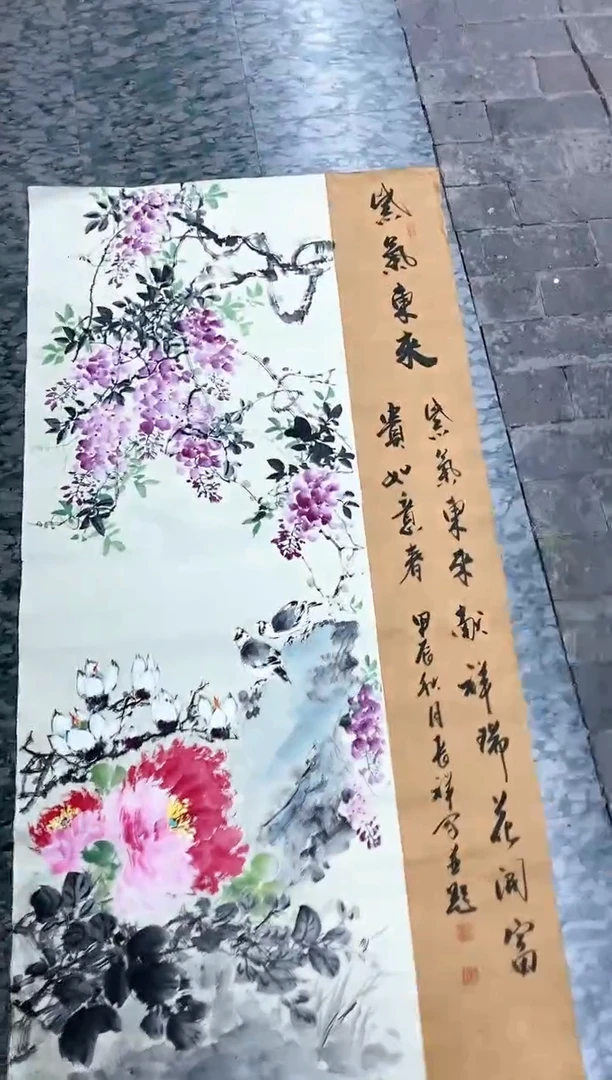 紫氣東來
紫氣東来献祥瑞花開富
貴如意春
甲辰秋月長祥写並題